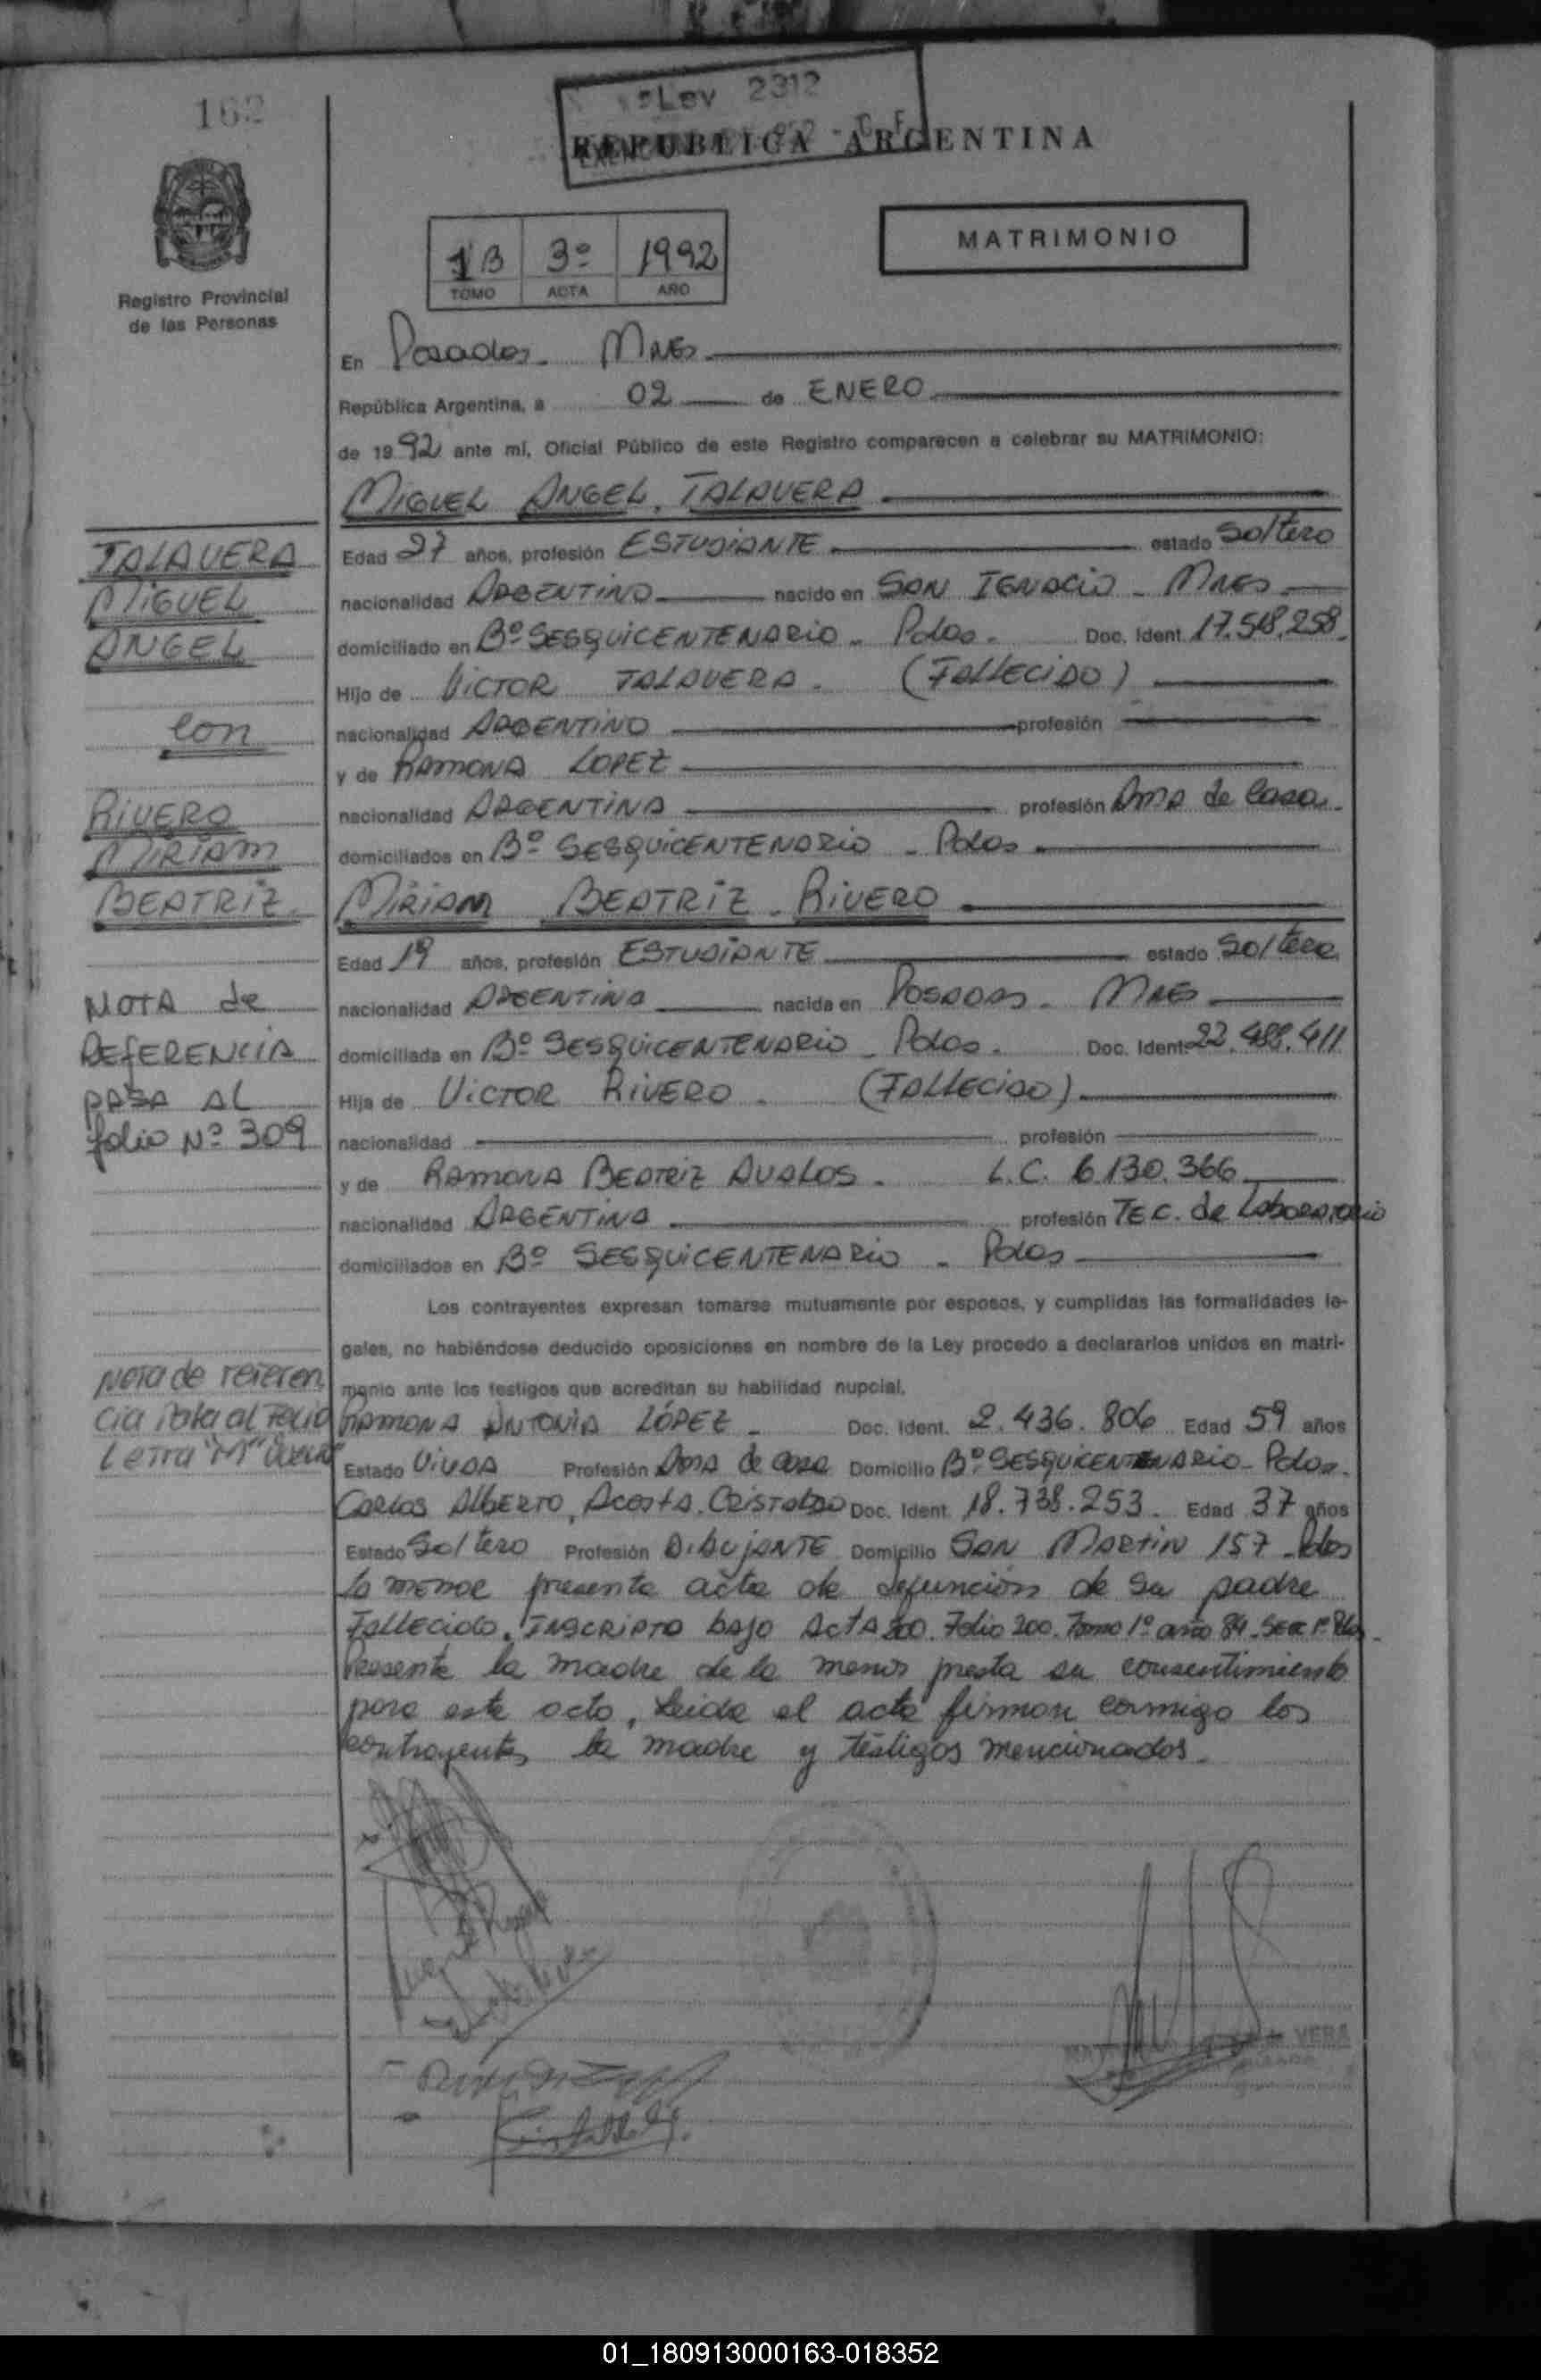 162
Ley 2312
REPUBLICA ARGENTINA
Registro Provincial
de las Personas
1B 3º 1992
TOMO ACTA AÑO
MATRIMONIO
En Posadas. Mnes.
República Argentina, a 02 de ENERO
de 1992 ante mí, Oficial Público de este Registro comparecen a celebrar su MATRIMONIO:
MIGUEL ANGEL. TALAVERA
Edad 27 años, profesión ESTUDIANTE estado Soltero
nacionalidad ARGENTINO nacido en SAN IGNACIO - MNES
domiciliado en Bº SESQUICENTENARIO - Pdas. Doc. Ident. 17.518.258
Hijo de VICTOR TALAVERA. (FALLECIDO)
nacionalidad ARGENTINO profesión
y de RAMONA LOPEZ
nacionalidad ARGENTINA profesión Ama de Casa.
domiciliados en Bº SESQUICENTENARIO - Pdas
MIRIAM BEATRIZ. RIVERO
Edad 19 años, profesión ESTUDIANTE estado Soltera
nacionalidad ARGENTINA nacida en POSADAS - MNES
domiciliada en Bº SESQUICENTENARIO - Pdas. Doc. Ident. 22.488.411
Hija de VICTOR RIVERO. (FALLECIDO)
nacionalidad profesión
y de RAMONA BEATRIZ AVALOS. L.C. 6.130.366
nacionalidad ARGENTINA profesión TEC. de Laboratorio
domiciliados en Bº SESQUICENTENARIO - Pdas
Los contrayentes expresan tomarse mutuamente por esposos, y cumplidas las formalidades le-
gales, no habiéndose deducido oposiciones en nombre de la Ley procedo a declararlos unidos en matri-
monio ante los testigos que acreditan su habilidad nupcial.
RAMONA ANTONIA LÓPEZ - Doc. Ident. 2.436.806 Edad 59 años
Estado VIUDA Profesión Ama de casa Domicilio Bº SESQUICENTENARIO - Pdas.
Carlos Alberto, Acosta. Cristaldo Doc. Ident. 18.738.253. Edad 37 años
Estado Soltero Profesión DIBUJANTE Domicilio SAN MARTIN 157 - Pdas
La menor presenta acta de defunción de su padre
Fallecido. INSCRIPTO bajo Acta 200. Folio 200. Tomo 1º año 84. Secc 1º Pdas.
Presente la madre de la menor presta su consentimiento
para este acto, Leida el acta firman conmigo los
contrayentes la madre y testigos mencionados.
TALAVERA
MIGUEL
ANGEL
con
RIVERO
MIRIAM
BEATRIZ.
NOTA de
REFERENCIA
PASA AL
folio Nº 309
Nota de referen
cia Pasa al Folio
Letra "M"
VERA
01_180913000163-018352